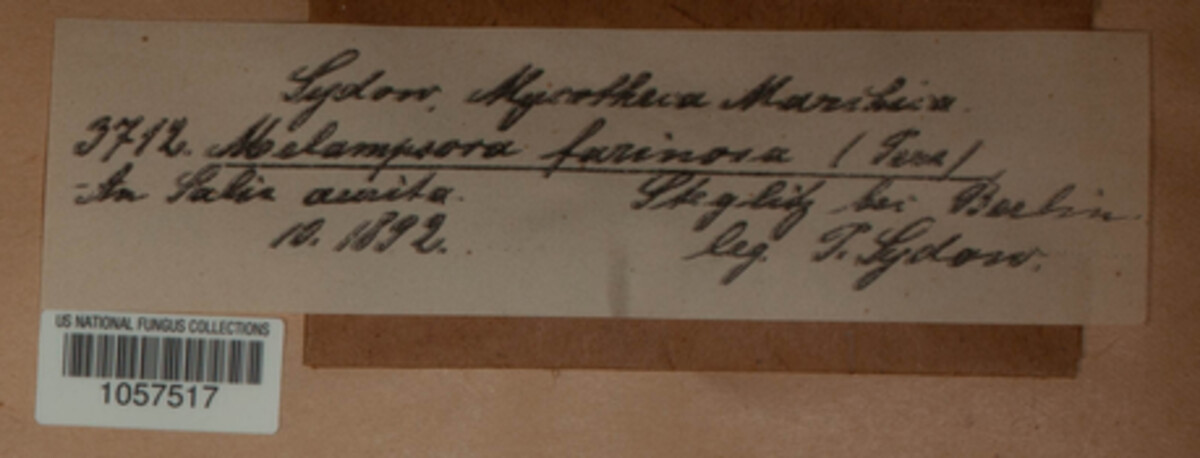 Sydow, Mycotheca Marchica.
3712. Melampsora farinosa (Pers)
An Salix aurita. Steglitz bei Berlin.
10. 1892. leg. P. Sydow.
US NATIONAL FUNGUS COLLECTIONS
1057517